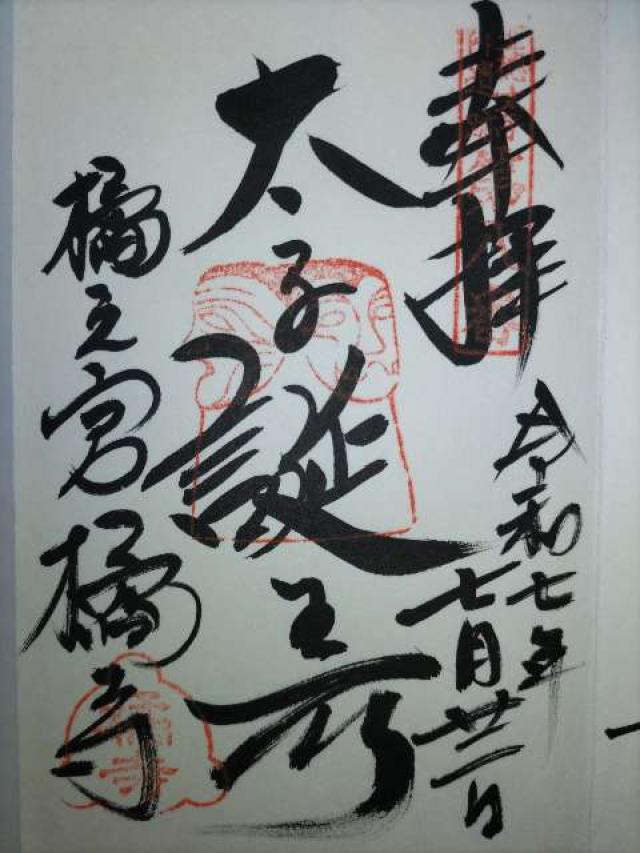 奉拝
令和七年
七月廿二日
太子誕生所
橘之宮 橘寺
橘寺